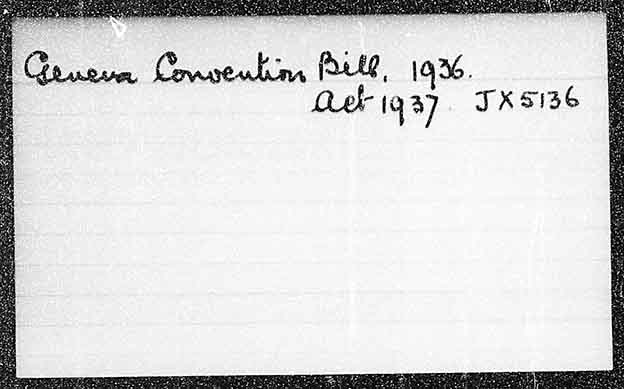 Geneva Convention Bill, 1936.
Act 1937. JX5136